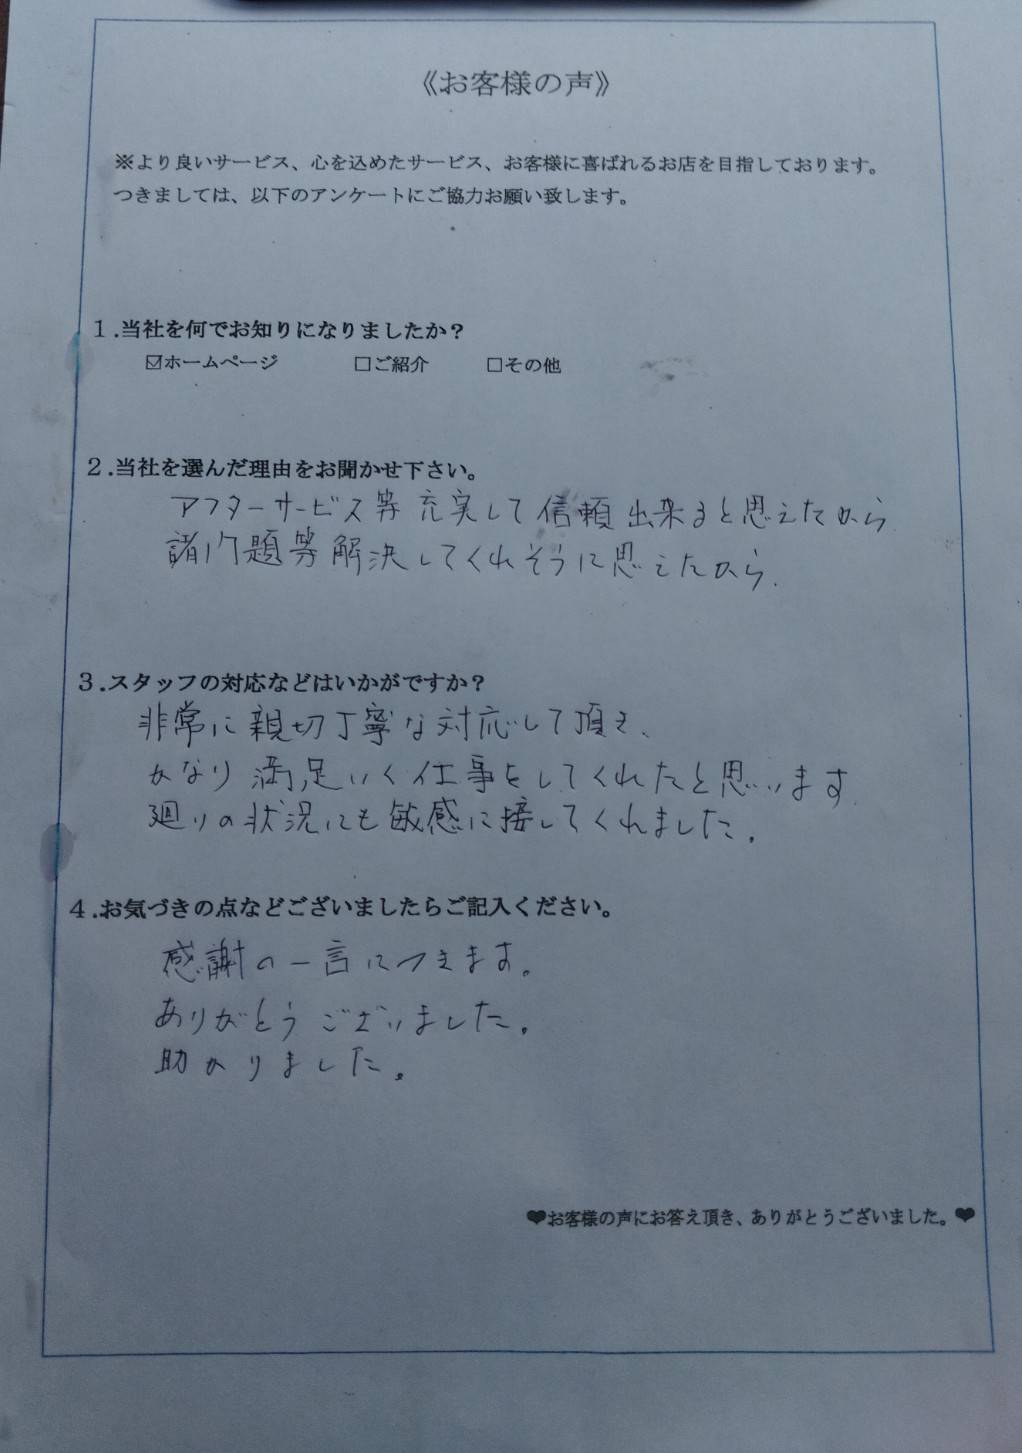 《お客様の声》
※より良いサービス、心を込めたサービス、お客様に喜ばれるお店を目指しております。
つきましては、以下のアンケートにご協力お願い致します。
1.当社を何でお知りになりましたか？
☑ホームページ　□ご紹介　□その他
2.当社を選んだ理由をお聞かせ下さい。
アフターサービス等充実して信頼出来ると思えたから
諸問題等解決してくれそうに思えたから.
3.スタッフの対応などはいかがですか？
非常に親切丁寧な対応して頂き、
かなり満足いく仕事をしてくれたと思います.
廻りの状況にも敏感に接してくれました.
4.お気づきの点などございましたらご記入ください。
感謝の一言につきます。
ありがとうございました。
助かりました。
❤お客様の声にお答え頂き、ありがとうございました。❤